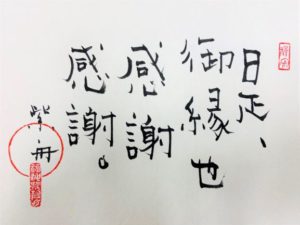 日疋、
御縁也
感謝
感謝。
紫舟